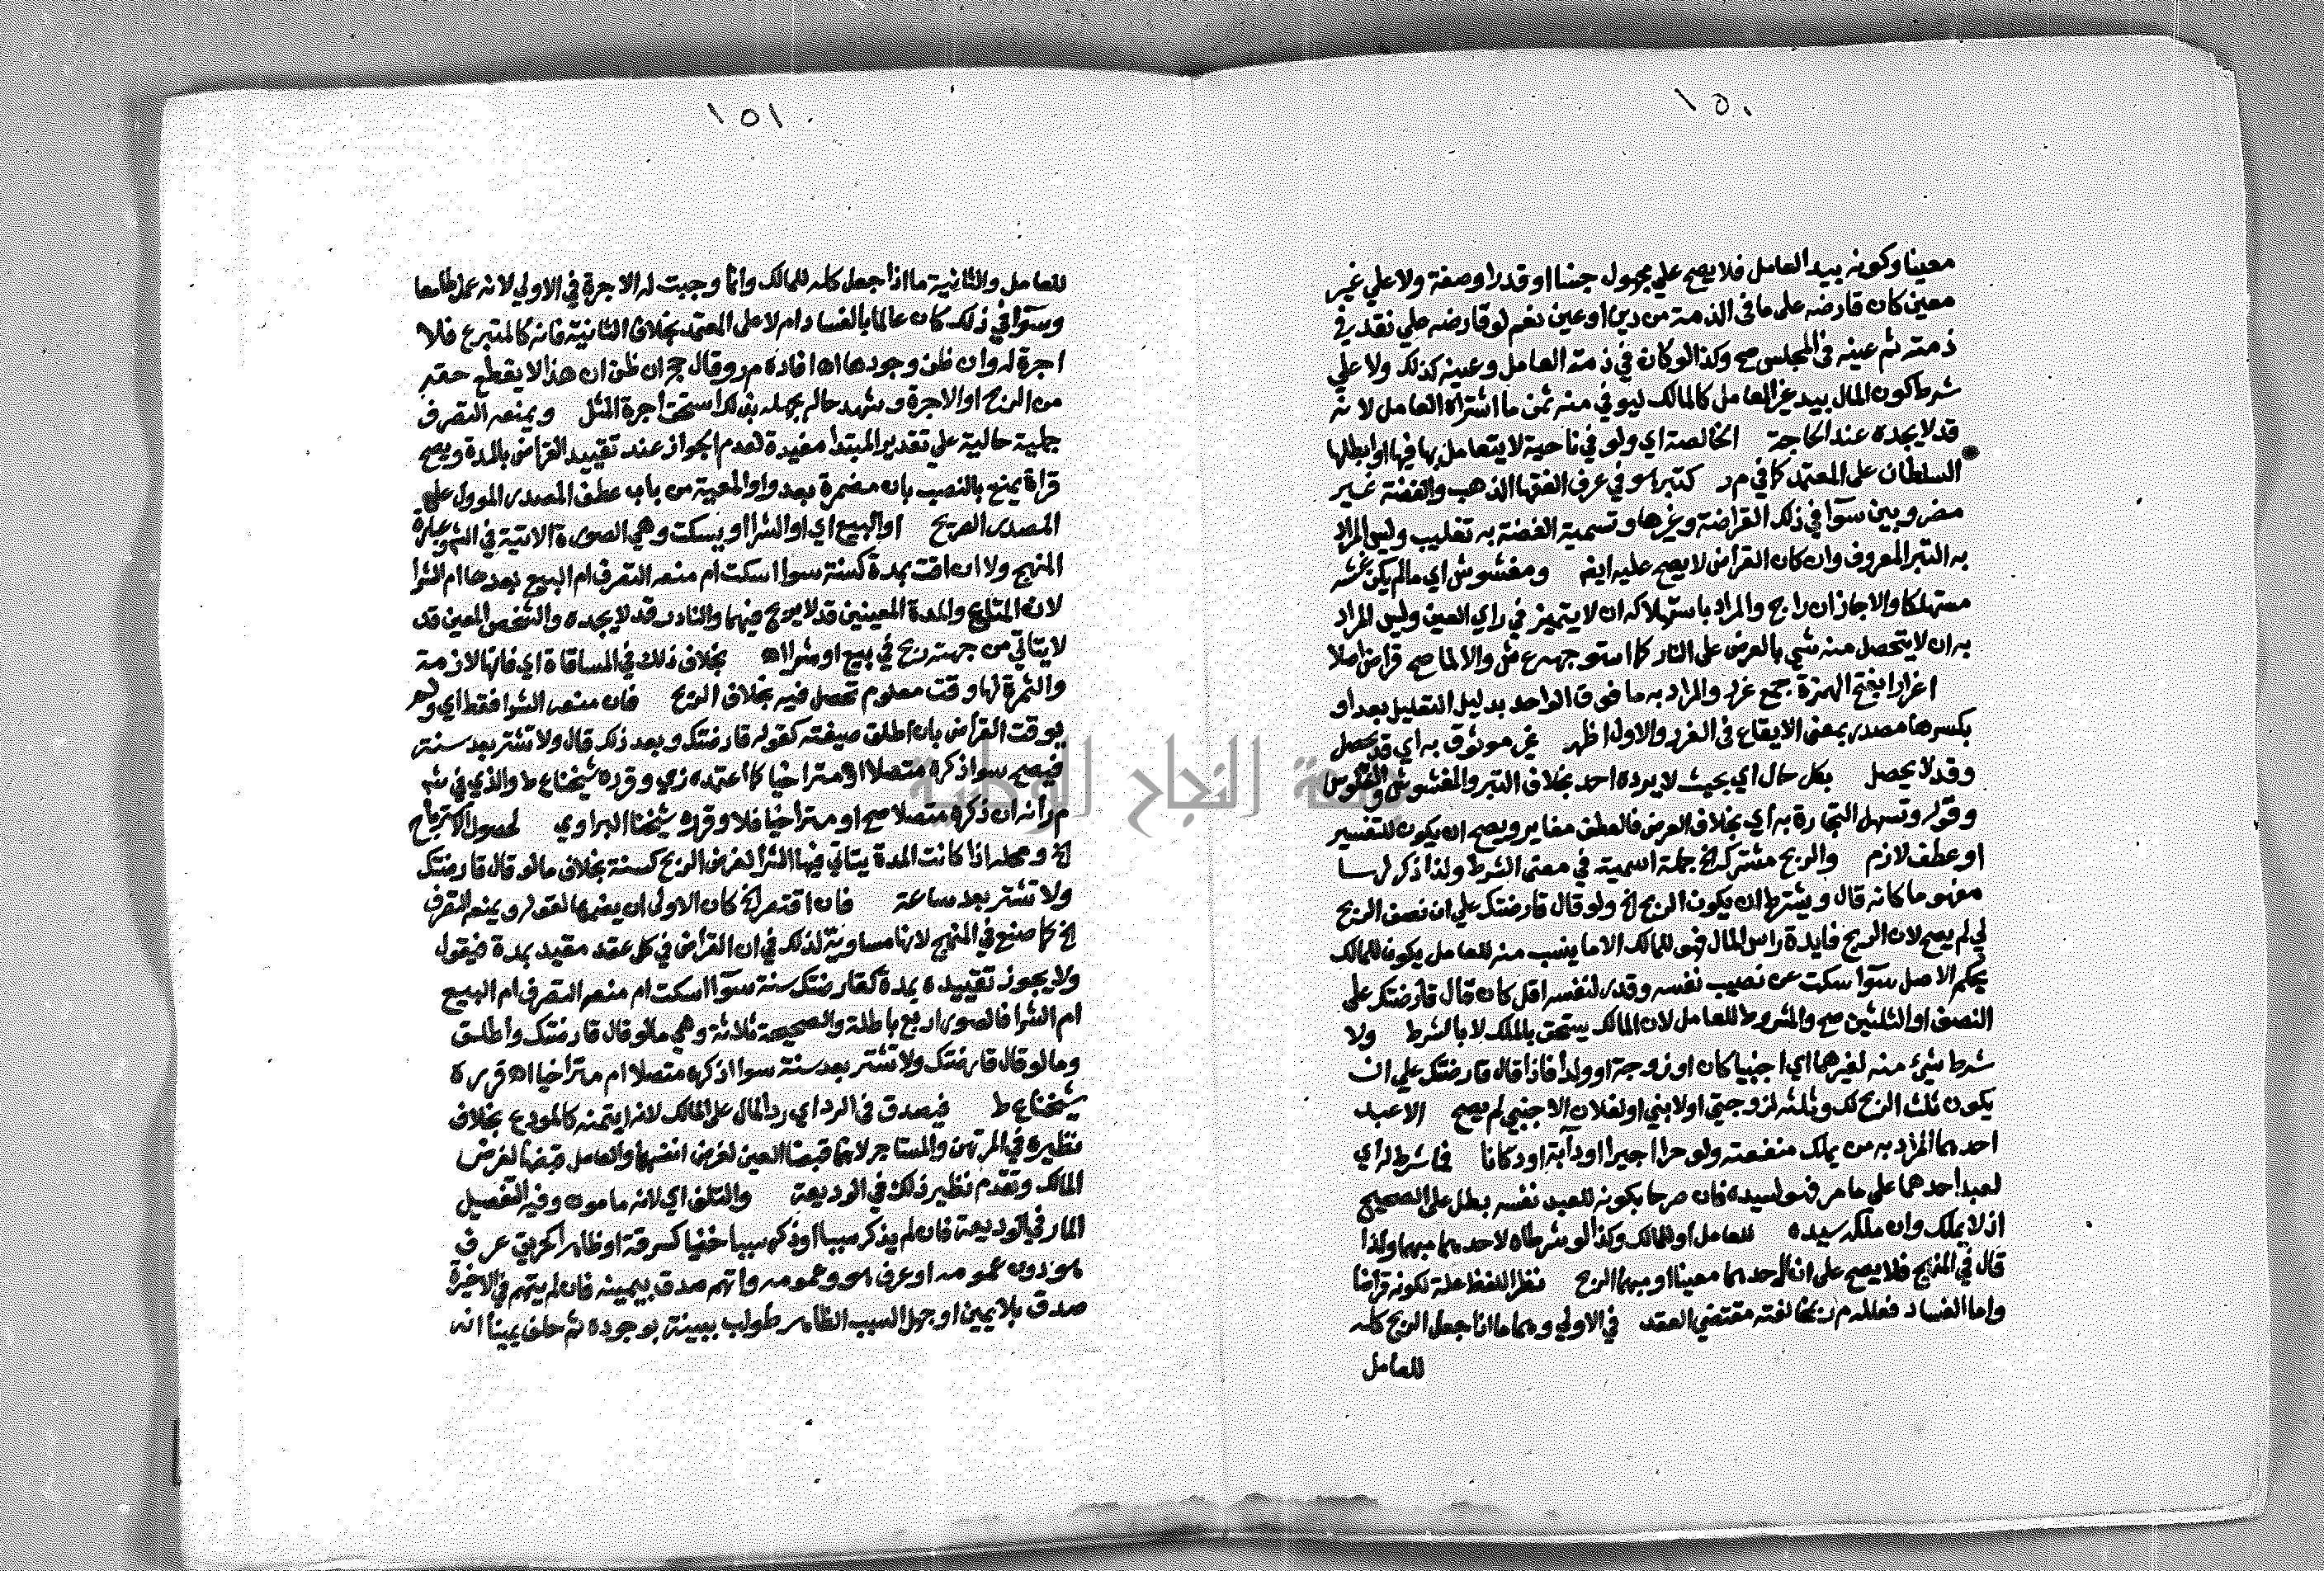 ١٥٠
معينا وكونه بيد العامل فلا يصح علي مجهول جنسا او قدرا وصفة ولا علي غير
معين كان قارضه على ما في الذمة من دين او عين نعم لو قارضه علي نقد في
ذمته ثم عينه في المجلس صح وكذا لو كان في ذمة العامل وعينه كذلك ولا علي
شرط كون المال بيد غير العامل كالمالك ليوفي منه ثمن ما اشتراه العامل لانه
قد لا يجده عند الحاجة الخالصة اي ولو في ناحية لا يتعامل بها فيها او ابطلها
السلطان على المعتمد كما في م ر كتبر هو في عرف الفقها الذهب والفضة غير
مضروبين سوآ في ذلك القراضة وغيرها وتسمية الفضة به تغليب وليس المراد
به التبر المعروف وان كان القراض لا يصح عليه ايضا ومغشوش اي ما لم يكن غشه
مستهلكا والا جاز ان راج والمراد باستهلاكه ان لا يتميز في راي العين وليس المراد
به ان لا يتحصل منه شي بالعرض على النار كما استوجهه ع ش والا لما صح قراض اصلا
اغرارا بفتح الهمزة جمع غرر والمراد به ما فوق الواحد بدليل التعليل بعد او
بكسرها مصدر بمعنى الايقاع في الغرر والاول اظهر غير موثوق به اي قد يحصل
وقد لا يحصل بكل حال اي بحيث لا يرده احد بخلاف التبر والمغشوش والفلوس
وقوله وتسهل التجارة به اي بخلاف العرض فالعطف مغاير ويصح ان يكون للتفسير
او عطف لازم والربح مشترك الخ جملة اسمية في معنى الشرط ولذا ذكر لها
مفهوما كانه قال ويشترط ان يكون الربح الخ ولو قال قارضتك علي ان نصف الربح
لي لم يصح لان الربح فايدة راس المال فهو للمالك الا ما ينسب منه للعامل يكون للمالك
بحكم الاصل سوآ سكت عن نصيب نفسه وقدر لنفسه اقل كان قال قارضتك على
النصف او الثلثين صح والمشروط للعامل لان المالك يستحق بالملك لا بالشرط ولا
شرط شيء منه لغيرهما اي اجنبيا كان او زوجة او ولدا فاذا قال قارضتك علي ان
يكون ثلث الربح لك وثلثه لزوجتي او لابني او لفلان الاجنبي لم يصح الا عبد
احدهما المراد به من يملك منفعته ولو حرا اجيرا او دآبة او دكانا فما شرط له اي
لعبد احدهما علي ما مر فهو لسيده فان صرحا بكونه للعبد نفسه بطل على الصحيح
اذ لا يملك وان ملكه سيده للعامل او للمالك وكذا لو شرطاه لاحدهما مبهما وكذا
قال في المنهج فلا يصح على ان لاحدهما معينا او مبهما الربح نظرا للفظ علة لكونه قراضا
واما الفساد فعلله م ر بمخالفته مقتضي العقد في الاولي وهما ما اذا جعل الربح كله
للعامل
١٥١
للعامل والثانية ما اذا جعل كله للمالك وانما وجبت له الاجرة في الاولي لانه عمل طامعا
وسوآ في ذلك كان عالما بالفساد ام لا على المعتمد بخلاف الثانية فانه كالمتبرع فلا
اجرة له وان ظن وجودها اه افاده م ر وقال حج ان ظن ان هذا لا يقطع حقه
من الربح او الاجرة وشهد حاله بجهله بذلك استحق اجرة المثل ويمنعه التصرف
جملية حالية علي تقدير المبتدا مفيدة لعدم الجواز عند تقييد القراض بالمدة ويصح
قراة يمنع بالنصب بان مضمرة بعد واو المعية من باب عطف المصدر الموول على
المصدر الصريح او البيع اي او الشرا او يسكت وهي الصورة الاتية في الشرح وعبارة
المنهج ولا ان اقت بمدة كسنة سوا اسكت ام منعه التصرف ام البيع بعدها ام الشرا
لان المتاع والمدة المعينين قد لا يربح فيهما والنادر قد لا يجده والشخص المعين قد
لا يتاتي من جهته ربح في بيع او شرا اه بخلاف ذلك في المساقاة اي فانها لازمة
والثمرة لها وقت معلوم تحصل فيه بخلاف الربح فان منعه الشرا فقط اي ولم
يوقت القراض بان اطلق صيغته كقوله قارضتك وبعد ذلك قال ولا تشتر بعد سنة
فيصح سوا ذكره متصلا او متراخيا كما اعتمده زي وقرره شيخنا ع ط والذي في شرح
م ر انه ان ذكره متصلا صح او متراخيا فلا وقرره شيخنا البراوي لحصول الاسترباح
الخ ومحله اذا كانت المدة يتاتي فيها الشرا لغرض الربح كسنة بخلاف ما لو قال قارضتك
ولا تشتر بعد ساعة فان اقتصر الخ كان الاولى ان يضمها لقوله ويمنعه التصرف
الخ كما صنع في المنهج لانها مساوية لذلك في ان القراض في كل عقد مقيد بمدة فيقول
ولا يجوز تقييده بمدة كقارضتك سنة سوآ اسكت ام منعه التصرف ام البيع
ام الشرا فالصور اربع باطلة والصحيحة ثلاثة وهي ما لو قال قارضتك واطلق
وما لو قال قارضتك ولا تشتر بعد سنة سوا اذكره متصلا ام متراخيا اه قرره
شيخنا ع ط فيصدق في الرد اي رد المال على المالك لانه ايتمنه كالمودع بخلاف
نظيره في المرتهن والمستاجر لانهما قبضا العين لغرض انفسهما والعامل قبضها لغرض
المالك وتقدم نظير ذلك في الوديعة والتلف اي لانه مامون وفيه التفصيل
المار في الوديعة فان لم يذكر سببا او ذكر سببا خفيا كسرقة او ظاهرا كحريق عرف
هو دون عمومه او عرف هو وعمومه واتهم صدق بيمينه فان لم يتهم في الاخيرة
صدق بلا يمين او جهل السبب الظاهر طولب ببينة بوجوده ثم حلف يمينا انه